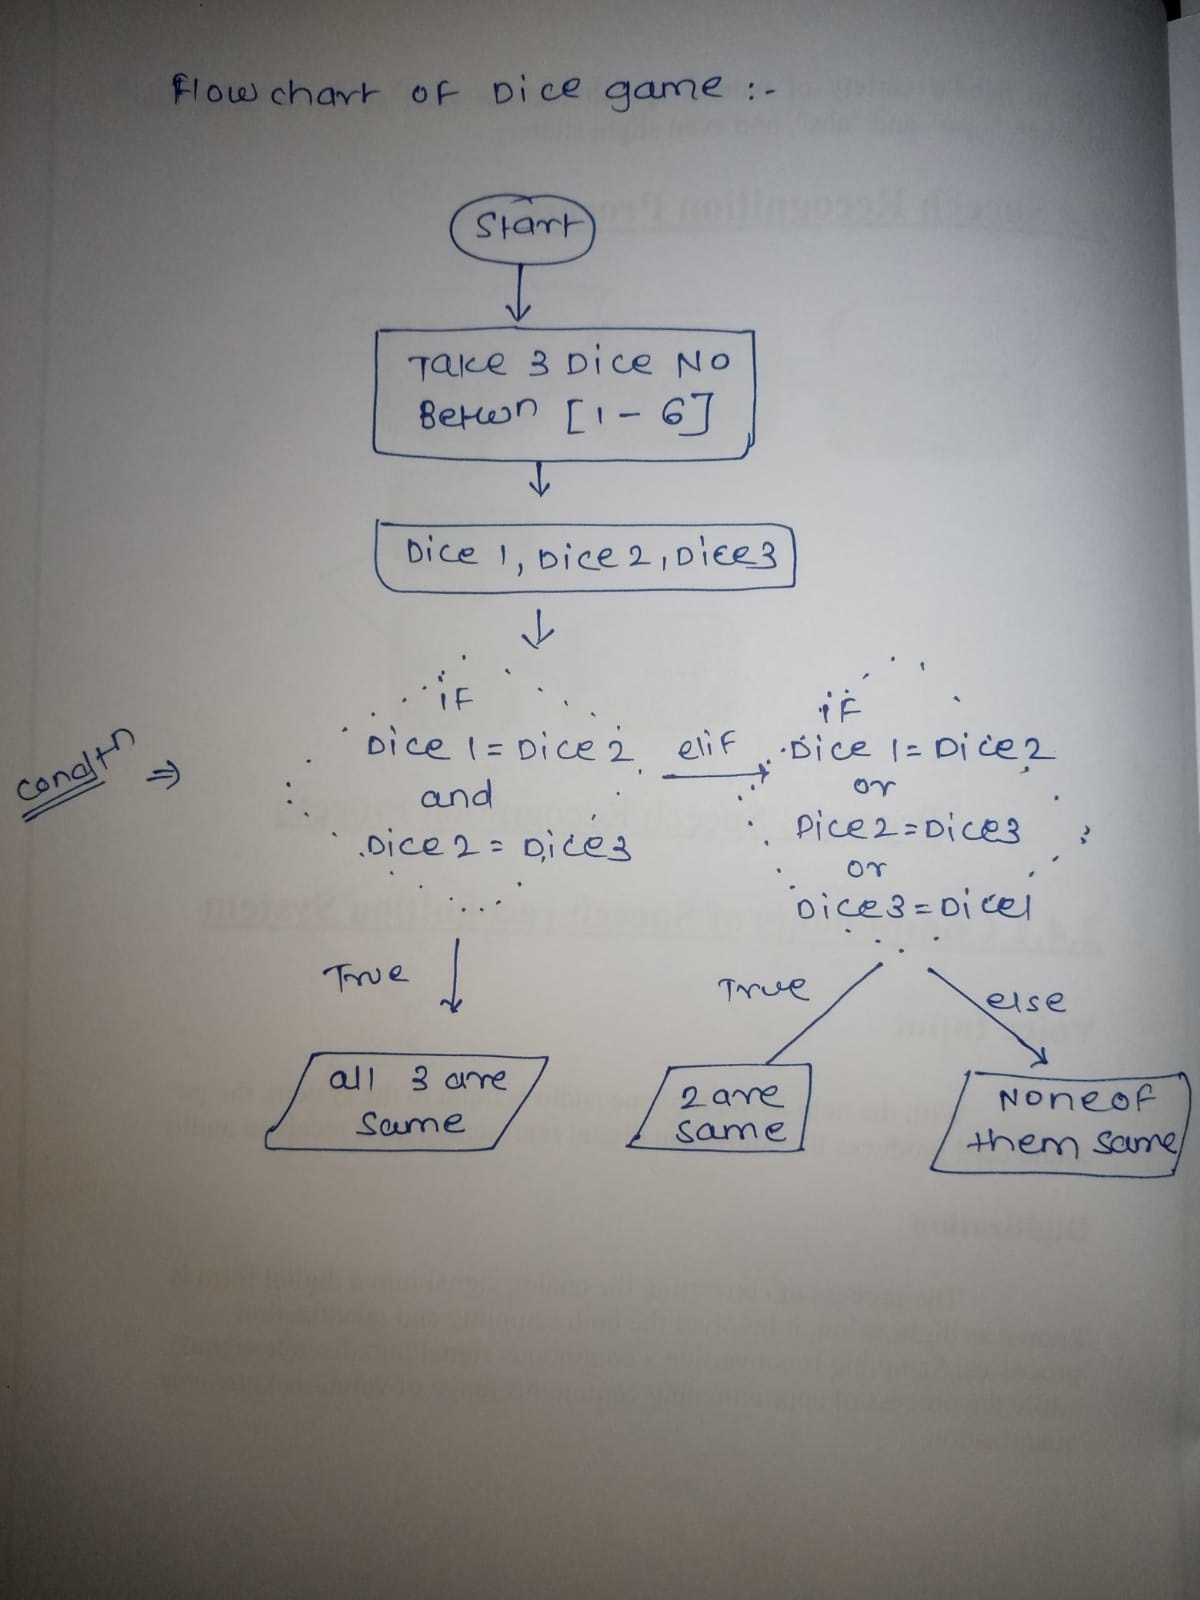 Flow chart OF Dice game :-
Start
Take 3 Dice No
Betwn [1 - 6]
Dice 1, Dice 2, Dice3
condtn ⇒
if
Dice 1 = Dice 2
and
Dice 2 = Dice3
elif
if
Dice 1 = Dice 2
or
Dice 2 = Dice3
or
Dice3 = Dice1
True
True
else
all 3 are
same
2 are
same
None of
them same